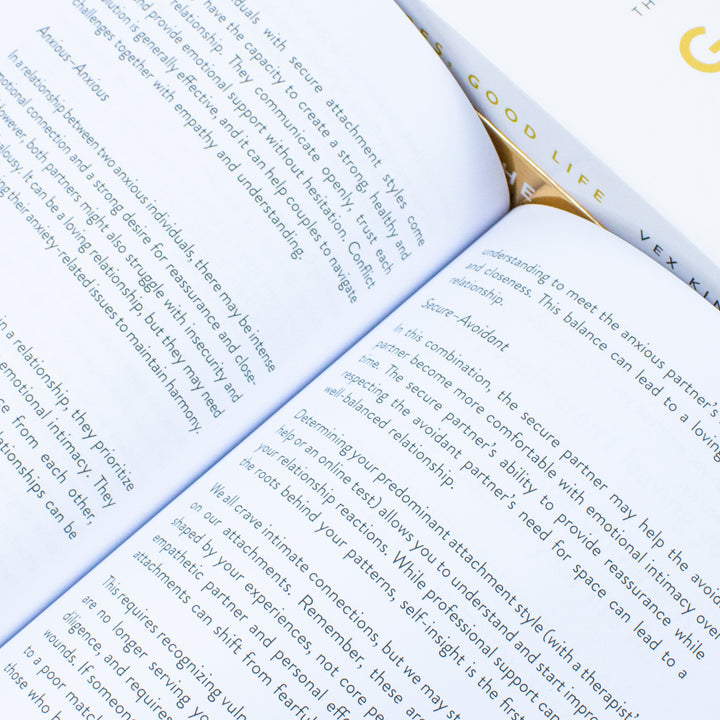 viduals with secure attachment styles come
have the capacity to create a strong, healthy and
relationship. They communicate openly, trust each
and provide emotional support without hesitation. Conflict
solution is generally effective, and it can help couples to navigate
challenges together with empathy and understanding.
Anxious–Anxious
In a relationship between two anxious individuals, there may be intense
emotional connection and a strong desire for reassurance and close-
However, both partners might also struggle with insecurity and
It can be a loving relationship, but they may need
their anxiety-related issues to maintain harmony.
in a relationship, they prioritize
emotional intimacy. They
from each other,
relationships can be
understanding to meet the anxious partner's
and closeness. This balance can lead to a loving
relationship.
Secure–Avoidant
In this combination, the secure partner may help the avoid
partner become more comfortable with emotional intimacy over
time. The secure partner's ability to provide reassurance while
respecting the avoidant partner's need for space can lead to a
well-balanced relationship.
Determining your predominant attachment style (with a therapist
help or an online test) allows you to understand and start impro
your relationship reactions. While professional support can
the roots behind your patterns, self-insight is the first
We all crave intimate connections, but we may st
on our attachments. Remember, these are
shaped by your experiences, not core pe
empathetic partner and personal effo
attachments can shift from fearful
This requires recognizing vuln
are no longer serving yo
diligence, and requires
wounds. If someon
to a poor match
those who h
GOOD LIFE
VEX KIN
HE
TH
G